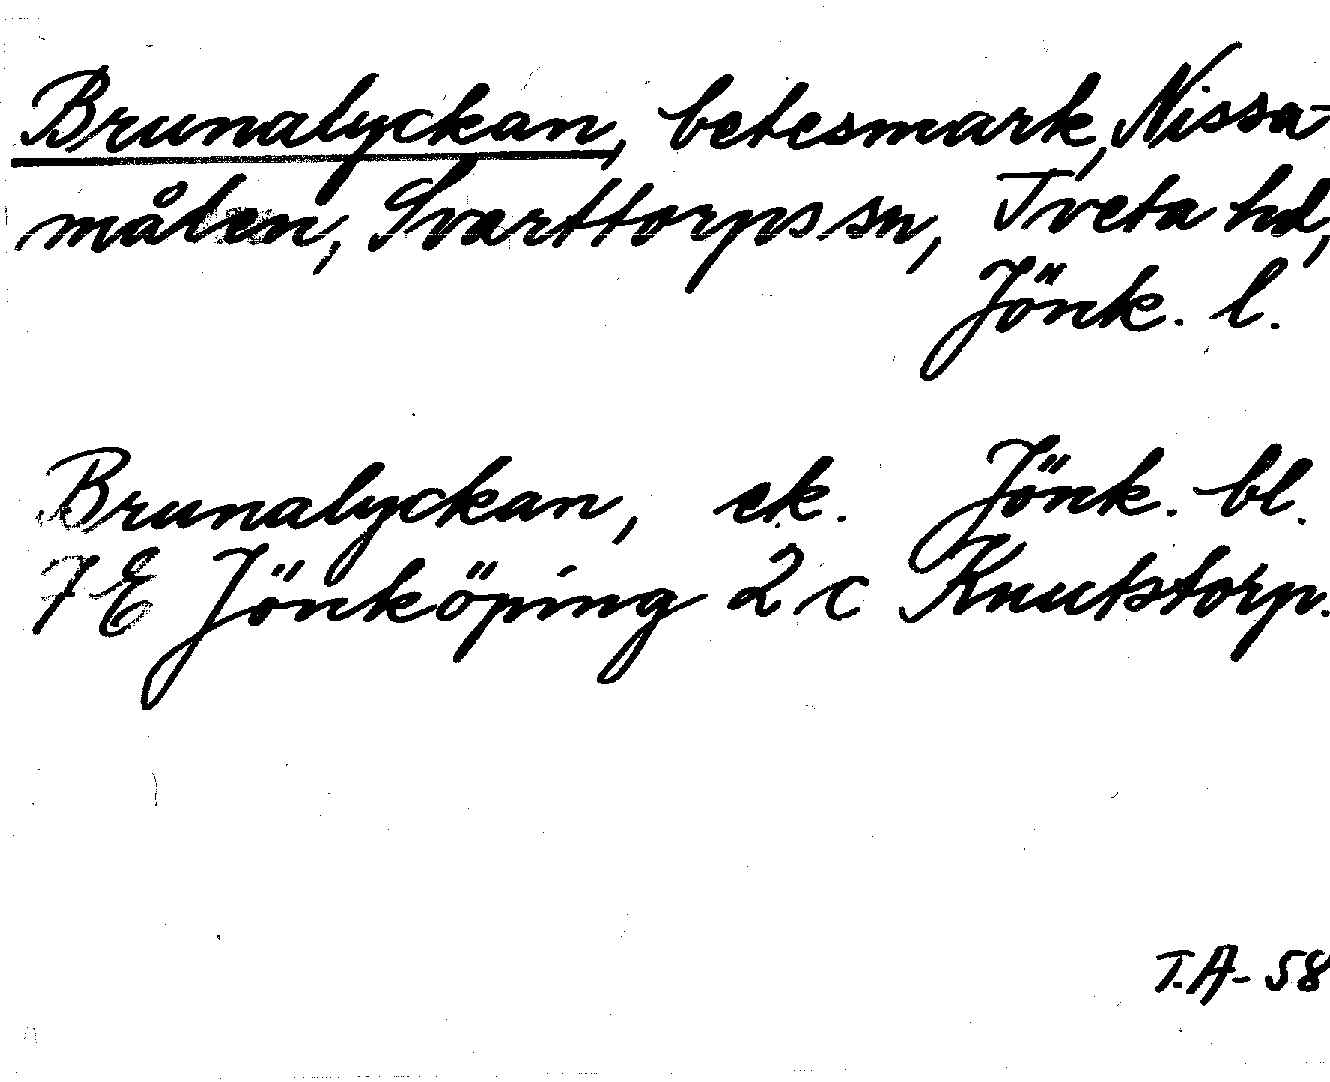 Brunalyckan, betesmark, Nissa-
målen, Svarttorps sn, Tveta hd,
Jönk. l.
Brunalyckan, ek. Jönk. bl.
7 E Jönköping 2 c Knutstorp.
T.A- 58